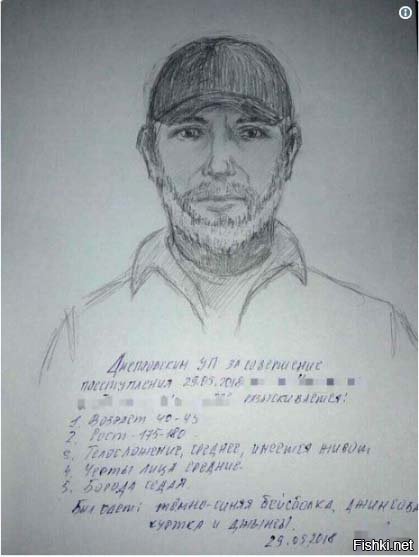 Днепровским УП за совершение
преступления 29.05.2018
разыскивается!
1. Возраст 40-45
2. Рост - 175-180
3. Телосложение, среднее, имеется живот
4. Черты лица средние
5. Борода седая
Был одет: тёмно-синяя бейсболка, джинсова
куртка и джинсы.
29.05.2018
Fishki.net
Fishki.net